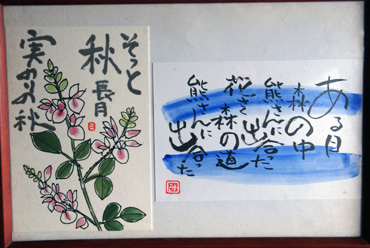 そっと
秋長月
実りの秋
ある日
森の中
熊さんに
出会った
花さく
森の道
熊さんに
出会った